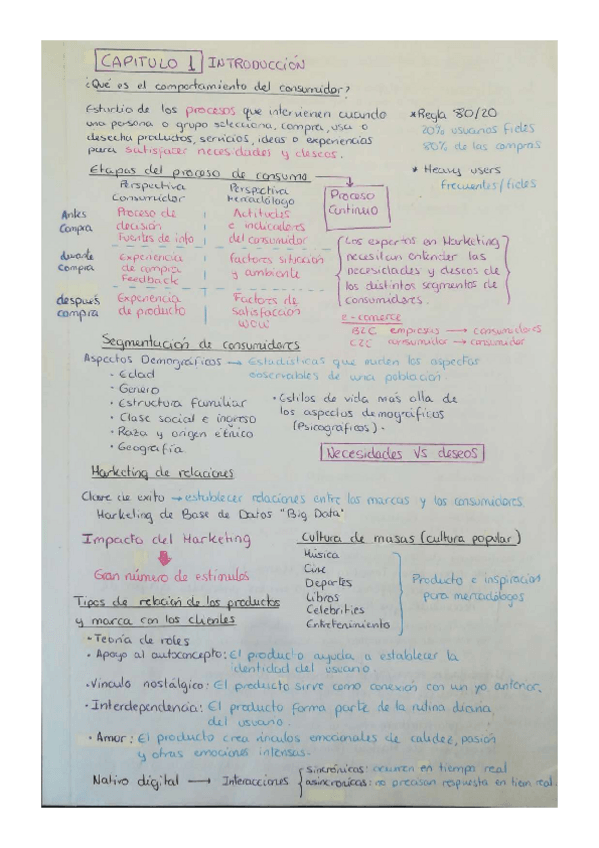 CAPITULO 1 INTRODUCCIÓN
¿Qué es el comportamiento del consumidor?
Estudio de los procesos que intervienen cuando
una persona o grupo selecciona, compra, usa o
desecha productos, servicios, ideas o experiencias
para satisfacer necesidades y deseos.
* Regla 80/20
20% usuarios fieles
80% de las compras
* Heavy users
frecuentes/fieles
Etapas del proceso de consumo
Proceso
Continuo
Perspectiva
Consumidor
Perspectiva
Mercadólogo
Antes
Compra
Proceso de
decisión
Fuentes de info
Actitudes
e indicadores
del consumidor
durante
compra
Experiencia
de compra
Feedback
Factores situación
y ambiente
después
compra
Experiencia
de producto
Factores de
satisfacción
WOW
Los expertos en Marketing
necesitan entender las
necesidades y deseos de
los distintos segmentos de
consumidores.
e-comerce
B2C empresas → consumidores
C2C consumidor → consumidor
Segmentación de consumidores
Aspectos Demográficos → Estadísticas que miden los aspectos
observables de una población.
· Edad
· Genero
· Estructura familiar
· Clase social e ingreso
· Raza y origen étnico
· Geografía
· Estilos de vida más alla de
los aspectos demográficos
(Psicográficos).
Necesidades VS deseos
Marketing de relaciones
Clave de exito → establecer relaciones entre las marcas y los consumidores
Marketing de Base de Datos "Big Data"
Impacto del Marketing
Gran número de estímulos
Cultura de masas (cultura popular)
Música
Cine
Deportes
Libros
Celebrities
Entretenimiento
Producto e inspiración
para mercadólogos
Tipos de relación de los productos
y marca con los clientes
· Teoría de roles
· Apoyo al autoconcepto: El producto ayuda a establecer la
identidad del usuario.
· Vinculo nostálgico: El producto sirve como conexión con un yo anterior.
· Interdependencia: El producto forma parte de la rutina diaria
del usuario.
· Amor: El producto crea vínculos emocionales de calidez, pasión
y otras emociones intensas.
Nativo digital → Interacciones
sincrónicas: ocurren en tiempo real
asincrónicas: no precisan respuesta en tiem real.